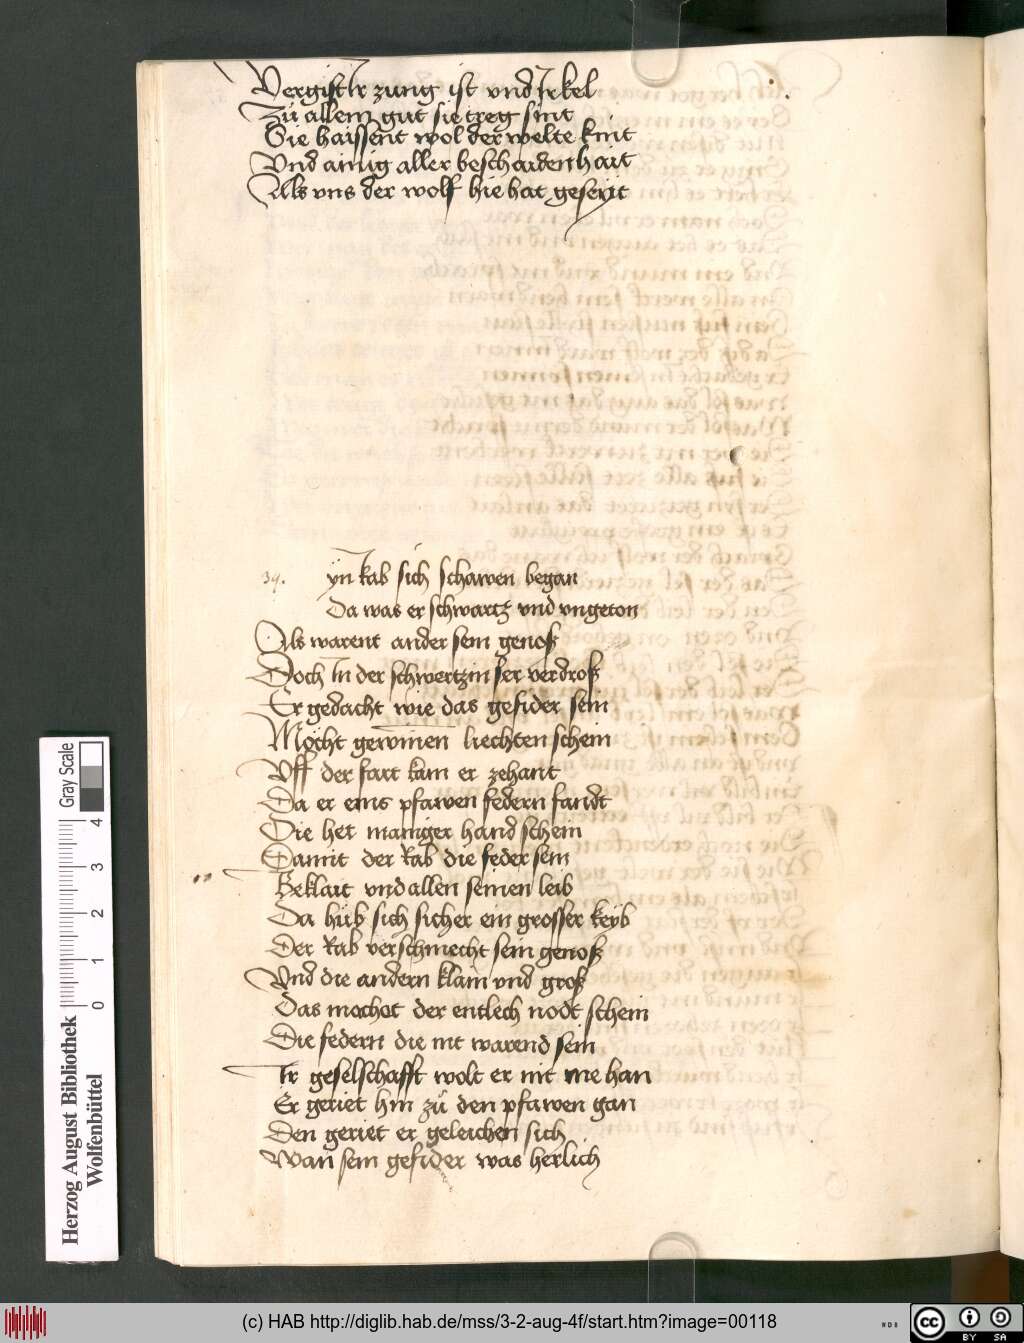 Vergift Ir zung ist vnd Irkel
Zů allem gut sie treg sint
Sie haissent wol der welte kint
Vnd ainig aller beschaidenhait
Als vns der wolf hie hat geseÿt
39.
ÿn kab sich schawen began
Da was er schwartz vnd vngeton
Als warent ander sein genoß
Doch In der schwertzin ser verdroß
Er gedacht wie das gefider sein
Möcht gewinnen liechten schein
Vff der fart kam er zehant
Da er eins pfawen federn fandt
Die het maniger hand schein
Damit der Rab die feder sein
Beklait vnd allen seinen leib
Da hůb sich sicher ein grosser keÿb
Der Rab verschmecht sein genoß
Vnd die andern klain vnd groß
Das machet der entlech nodt schein
Die federn die nit warend sein
Ir geselschafft wolt er nit me han
Er geriet hin zů den pfawen gan
Den geriet er geleichen sich
Wan sein gefider was herlich
Herzog August Bibliothek
Wolfenbüttel
Gray Scale
0 1 2 3 4
(c) HAB http://diglib.hab.de/mss/3-2-aug-4f/start.htm?image=00118
WDB
cc BY SA